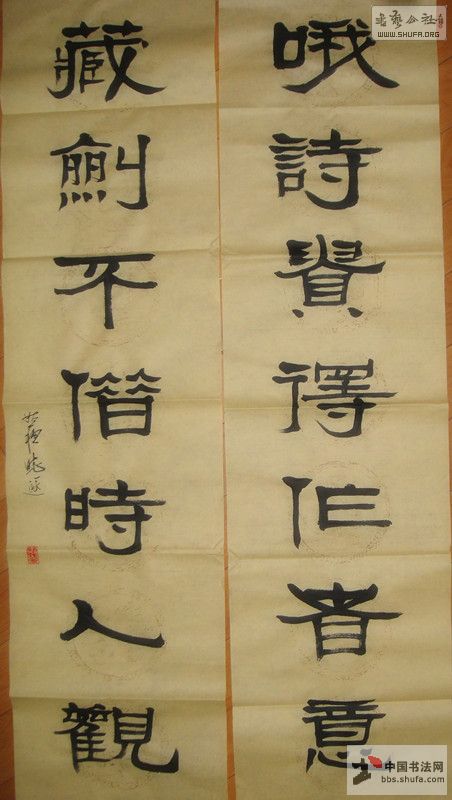 哦詩貴得作者意
藏劍不借時人觀
書藝公社
WWW.SHUFA.ORG
中国书法网
bbs.shufa.com